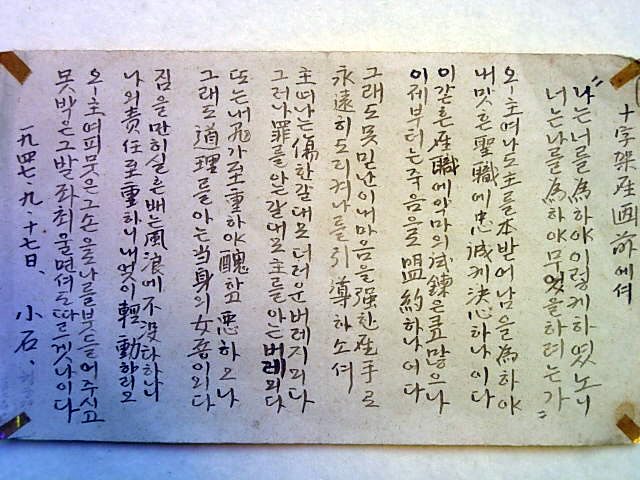 十字架聖画前에셔
"나는너를為하야이렇게하엿노니
너는나를為하야무엇을하려는가"
오!主여나도主를本받어남을為하야
내맛흔聖職에忠誠게決心하나이다
이같흔聖職에악마의試鍊은콤많으나
이제부터는주음으로盟約하나이다
그래도못믿난이내마음을强한聖手로
永遠히도리켜나를引導하소셔
主여나는傷한갈대오더러운버레지외다
그러나罪를아는갈대오主를아는버레외다
또는내罪가至重하야醜하고惡하오나
그래도道理를아는当身의女종이외다
짐을만히실흔배는風浪에不没다하니
나의責任至重하니내엇이輕動하리오
오!主여피뭇은그손으로나를붓들어주시고
못박은그발좌최울면셔따르겟나이다
一九四七·九·十七日、 小石、